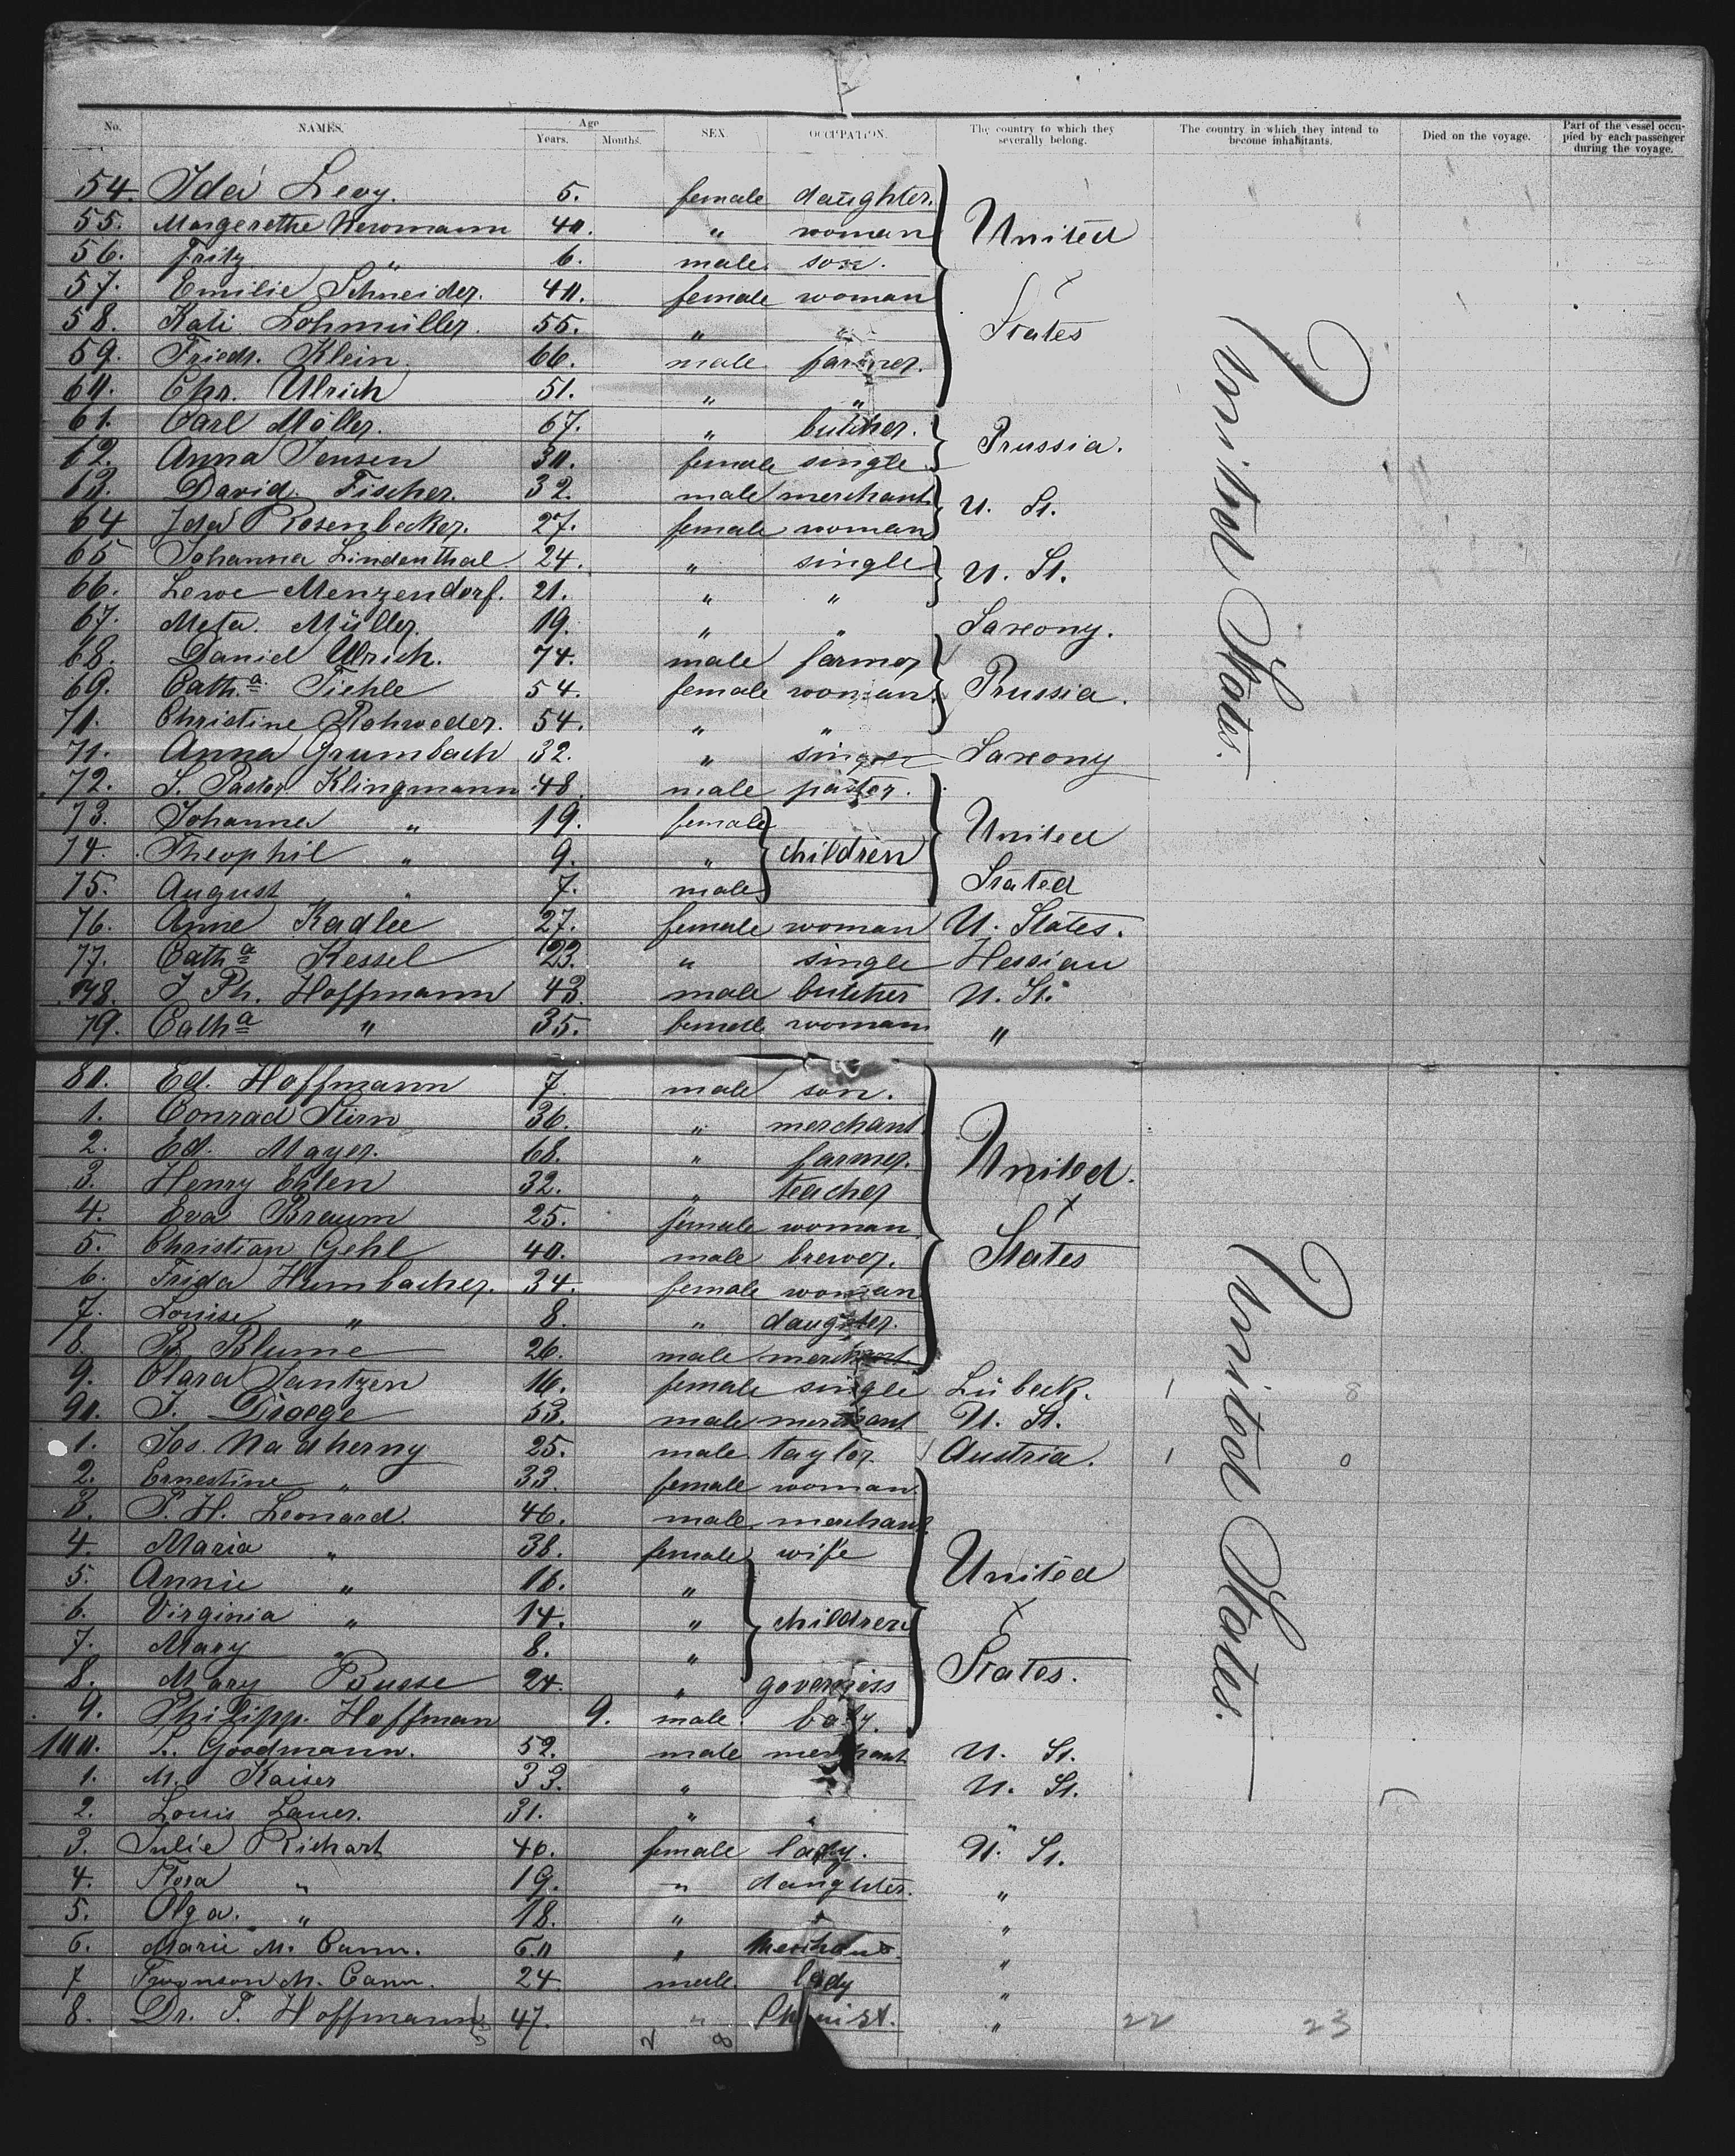 No. NAMES. Age Years. Months. SEX. OCCUPATION. The country to which they severally belong. The country in which they intend to become inhabitants. Died on the voyage. Part of the vessel occupied by each passenger during the voyage.
54. Ida Levy. 5. female daughter. United States
55. Margerethe Newmann 40. " woman
56. Fritz " 6. male son.
57. Emilie Schneider. 40. female woman
58. Kati Lohmüller. 55. " "
59. Friedr. Klein. 66. male farmer.
60. Chr. Ulrich 51. " "
61. Carl Möller. 67. " butcher. Prussia.
62. Anna Jensen 30. female single
63. David Fischer. 32. male merchant U. St.
64 Ida Rosenbecker. 27. female woman
65 Johanna Lindenthal 24. " single U. St.
66. Lewe Menzendorf. 21. " "
67. Meta Müller. 19. " " Saxony.
68. Daniel Ulrich. 74. male farmer Prussia.
69. Cath.a Tiehle 54. female woman
70. Christine Rohweder. 54. " "
71. Anna Grumbach 32. " single Saxony
72. S. Pastor Klingmann 48. male pastor. United Stated
73. Johanna " 19. female children
74. Theophil " 9. "
75. August " 7. male
76. Anne Kadlee 27. female woman U. States.
77. Cath.a Kessel 23. " single Hessian
78. J Ph. Hoffmann 43. male butcher U. St.
79. Cath.a " 35. female woman "
United States.
80. Ed. Hoffmann 7. male son. United States
1. Conrad Stirn 36. " merchant
2. Ed. Mayer. 68. " farmer.
3. Henry Ehlen 32. " teacher
4. Eva Braum 25. female woman
5. Christian Gehl 40. male brewer.
6. Frida Humbacher. 34. female woman
7. Louise " 8. " daughter.
8. B. Blume 26. male merchant.
9. Clara Jantzen 16. female single Lübeck. 1 8
90. J. Droege 53. male merchant U. St.
1. Jos. Nadherny 25. male taylor. Austria. 1 0
2. Ernestine " 33. female woman. United States.
3. P. H. Leonard. 46. male merchant
4. Maria " 38. female wife
5. Annie " 16. " children
6. Virginia " 14. "
7. Mary " 8. "
8. Mary Busse 24. " governiss
9. Philipp. Hoffman 9. male baby.
100. L. Goodmann. 52. male merchant U. St.
1. M. Kaiser 33. " " U. St.
2. Louis Lauer. 31. " " "
3. Julie Richart 40. female lady. U. St.
4. Flora " 19. " daughter. "
5. Olga. " 18. " " "
6. Marie M. Cann. 60 " "
7 M. Cann. 24. male. lady "
8. Dr. F. Hoffmann 47. " "
United States.
22 23
2 8